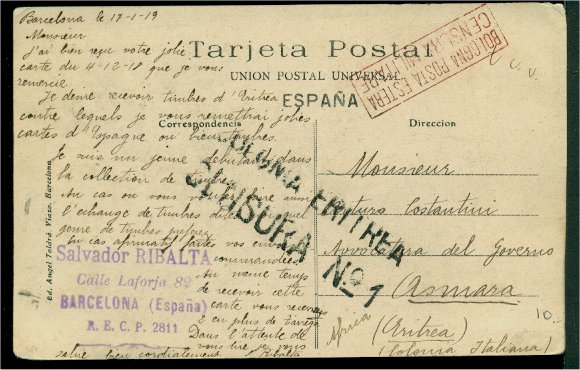 Barcelona le 17-1-19
Monsieur
J'ai bien reçu votre jolie
carte du 4-12-18 que je vous
remercie.
Je desire recevoir timbres d'Eritrea
contre lequels je vous remettrai jolies
cartes d'Espagne ou bien timbres.
Je suis un jeune débutant dans
la collection de timbres
Au cas ou vous aussi
l'échange de timbres dites quel
genre de timbres
En cas afirmatif faites vos envois
recommandées.
Au même temps
de recevoir cette
carte vous recevrez
2 en plus de
Dans l'attente de
vous lire je vous
salue bien cordialement Ribalta
Tarjeta Postal
UNION POSTAL UNIVERSAL
ESPAÑA
Correspondencia
Direccion
BOLOGNA POSTA ESTERA
CENSURA MILITARE
C. U. V.
COLONIA ERITREA
CENSURA No 1
Monsieur
Arturo Costantini
Avvocatura del Governo
Asmara
(Eritrea)
(Colonia Italiana)
Africa
10.
Salvador RIBALTA
Calle Laforja 82
BARCELONA (España)
R. E. C. P. 2811
Ed. Angel Toldrá Viazo. Barcelona